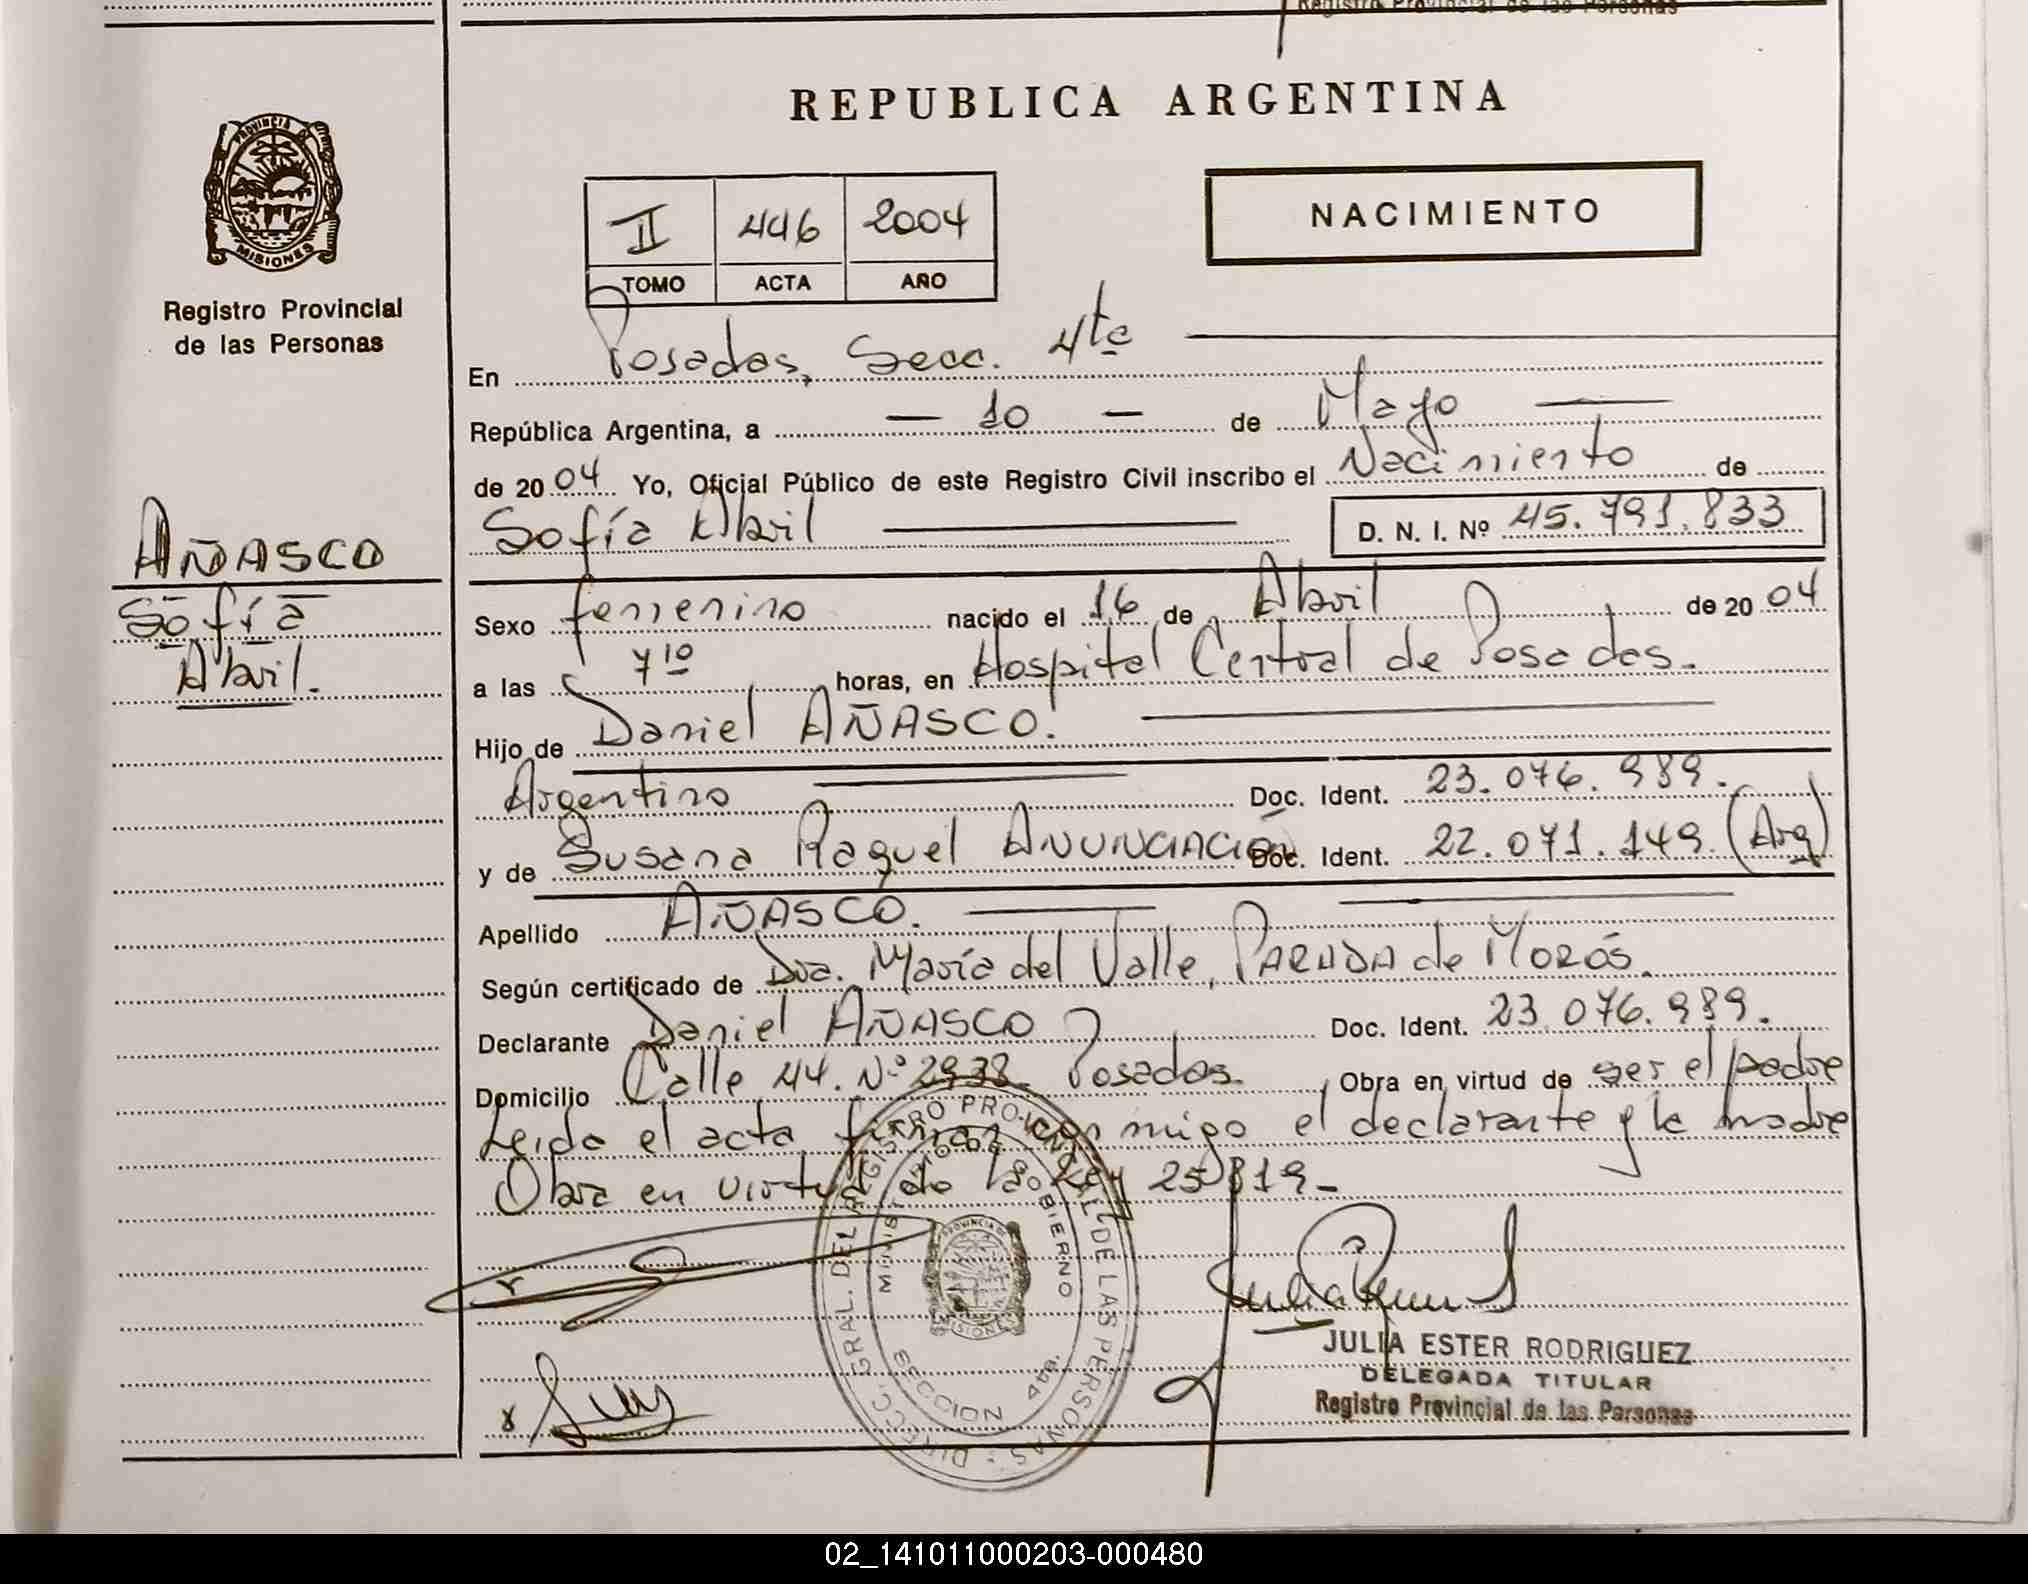 Registro Provincial de las Personas
REPUBLICA ARGENTINA
PROVINCIA DE
MISIONES
Registro Provincial
de las Personas
II 446 2004
TOMO ACTA AÑO
NACIMIENTO
En Posadas, Secc. 4ta
República Argentina, a — 10 — de Mayo
de 2004 Yo, Oficial Público de este Registro Civil inscribo el Nacimiento de
Sofía Abril D. N. I. Nº 45.791.833
AÑASCO
Sofía
Abril.
Sexo femenino nacido el 16 de Abril de 2004
a las 7 10 horas, en Hospital Central de Posadas.
Hijo de Daniel AÑASCO.
Argentino Doc. Ident. 23.076.989.
y de Susana Raquel ANUNCIACIÓN Doc. Ident. 22.071.149. (Arg)
Apellido AÑASCO.
Según certificado de Dra. María del Valle, PARADA de Morós.
Declarante Daniel AÑASCO Doc. Ident. 23.076.989.
Domicilio Calle 44. Nº 2938. Posadas. Obra en virtud de ser el padre
Leída el acta firman conmigo el declarante y la madre
Obra en virtud de la Ley 25819-
DIRECC. GRAL. DEL REGISTRO PROVINCIAL DE LAS PERSONAS
MINISTERIO DE GOBIERNO
PROVINCIA DE
MISIONES
SECCION 4ta.
JULIA ESTER RODRIGUEZ
DELEGADA TITULAR
Registro Provincial de las Personas
02_141011000203-000480